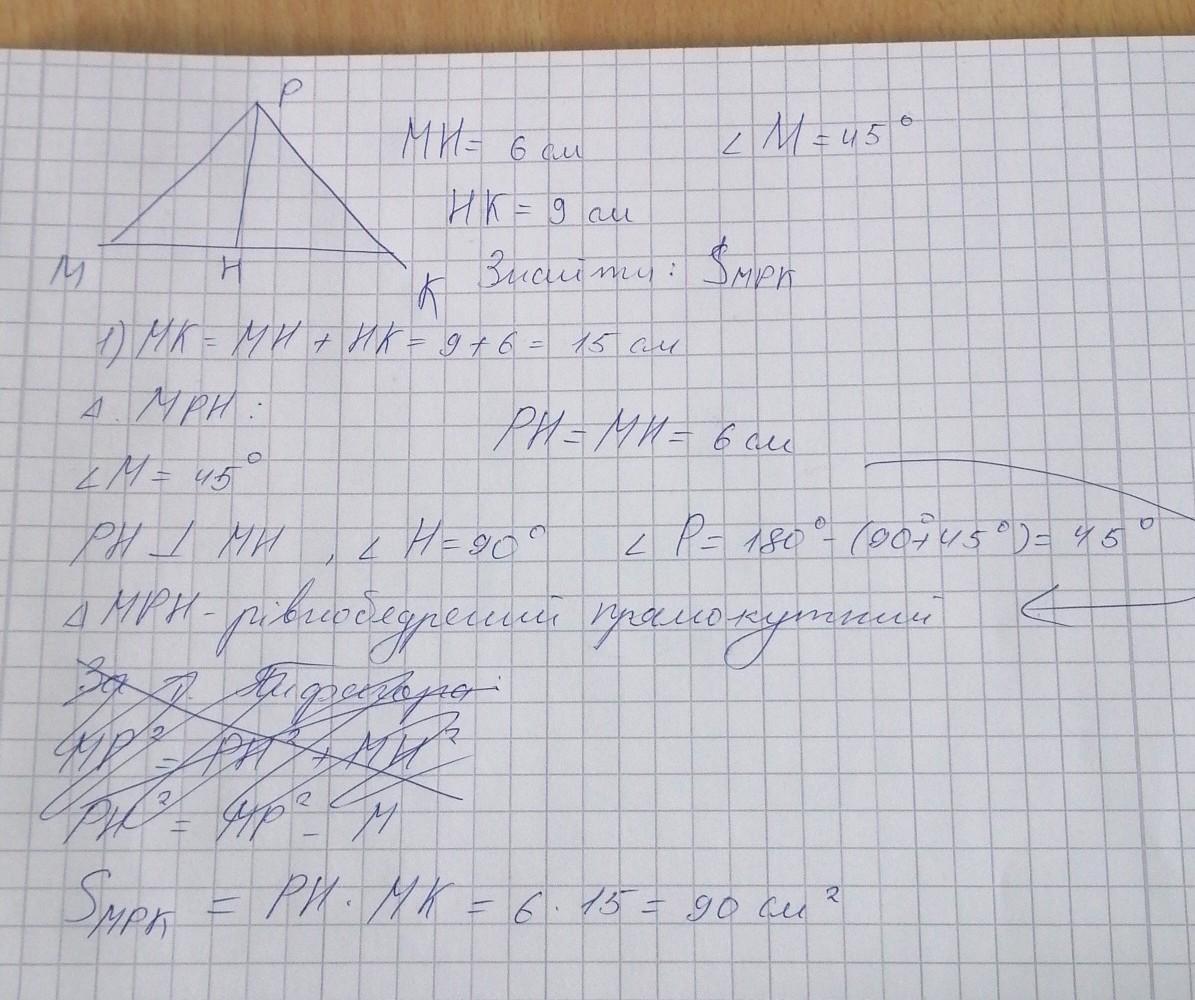 P
MH = 6 см ∠ M = 45°
HK = 9 см
M H K Знайти: S MPK
1) MK = MH + HK = 9 + 6 = 15 см
Δ. MPH:
PH = MH = 6 см
∠M = 45°
PH ⊥ MH , ∠ H = 90° ∠ P = 180° - (90°+45°) = 45°
Δ MPH - рівнобедрений прямокутний
За т. Пифагора:
MP² = PH² + MH²
PH² = MP² - M
S MPK = PH · MK = 6 · 15 = 90 см²